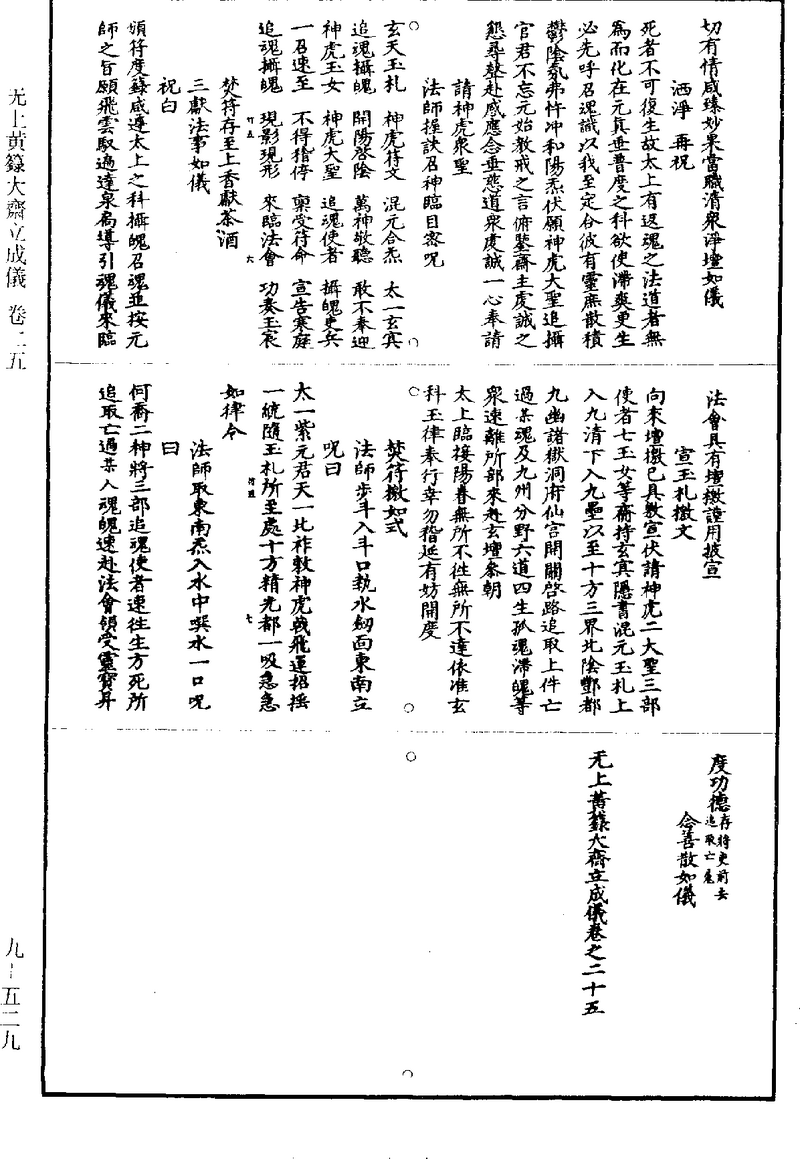 切有情咸臻妙果當職清衆淨壇如儀
洒淨　再祝
死者不可復生故太上有返魂之法道者無
爲而化在元真垂普度之科欲使滯爽更生
必先呼召魂識以我至定合彼有靈庶散積
鬱陰氛弗忤冲和陽炁伏願神虎大聖追攝
官君不忘元始教戒之言俯鑒齋主虔誠之
懇尋聲赴感應念垂慈道衆虔誠一心奉請
請神虎衆聖
法師揑訣召神臨目密呪
玄天玉札　神虎符文　混元合炁　太一玄冥
追魂攝魄　開陽啓陰　萬神敬聽　敢不奉迎
神虎玉女　神虎大聖　追魂使者　攝魄吏兵
一召速至　不得稽停　稟受符命　宣告寒庭
追魂攝魄　現影現形　來臨法會　功奏玉宸
焚符存至上香獻茶酒
三獻法事如儀
祝白
頒符度籙咸遵太上之科攝魄召魂並按元
師之旨願飛雲馭過達泉扃導引魂儀來臨
法會具有壇檄謹用披宣
宣玉札檄文
向來壇檄已具敷宣伏請神虎二大聖三部
使者七玉女等齋持玄冥隱書混元玉札上
入九清下入九壘以至十方三界北陰酆都
九幽諸獄洞府仙宮開關啓路追取上件亡
過某魂及九州分野六道四生孤魂滯魄等
衆速離所部來赴玄壇參朝
太上臨接陽眷無所不徃無所不達依准玄
科玉律奉行幸勿稽延有妨開度
焚符檄如式
法師步斗入斗口執水劒面東南立
呪曰
太一紫元君天一北祚敕神虎戟飛運招摇
一統隨玉札所至處十方精光都一吸急急
如律令
法師取東南炁入水中噀水一口呪
曰
何喬二神將三部追魂使者速往生方死所
追取亡過某人魂魄速赴法會領受靈寳昇
度功德存將吏前去追取亡魂
念善散如儀
无上黃籙大齋立成儀卷之二十五
无上黃籙大齋立成儀　卷二五
九－五二九